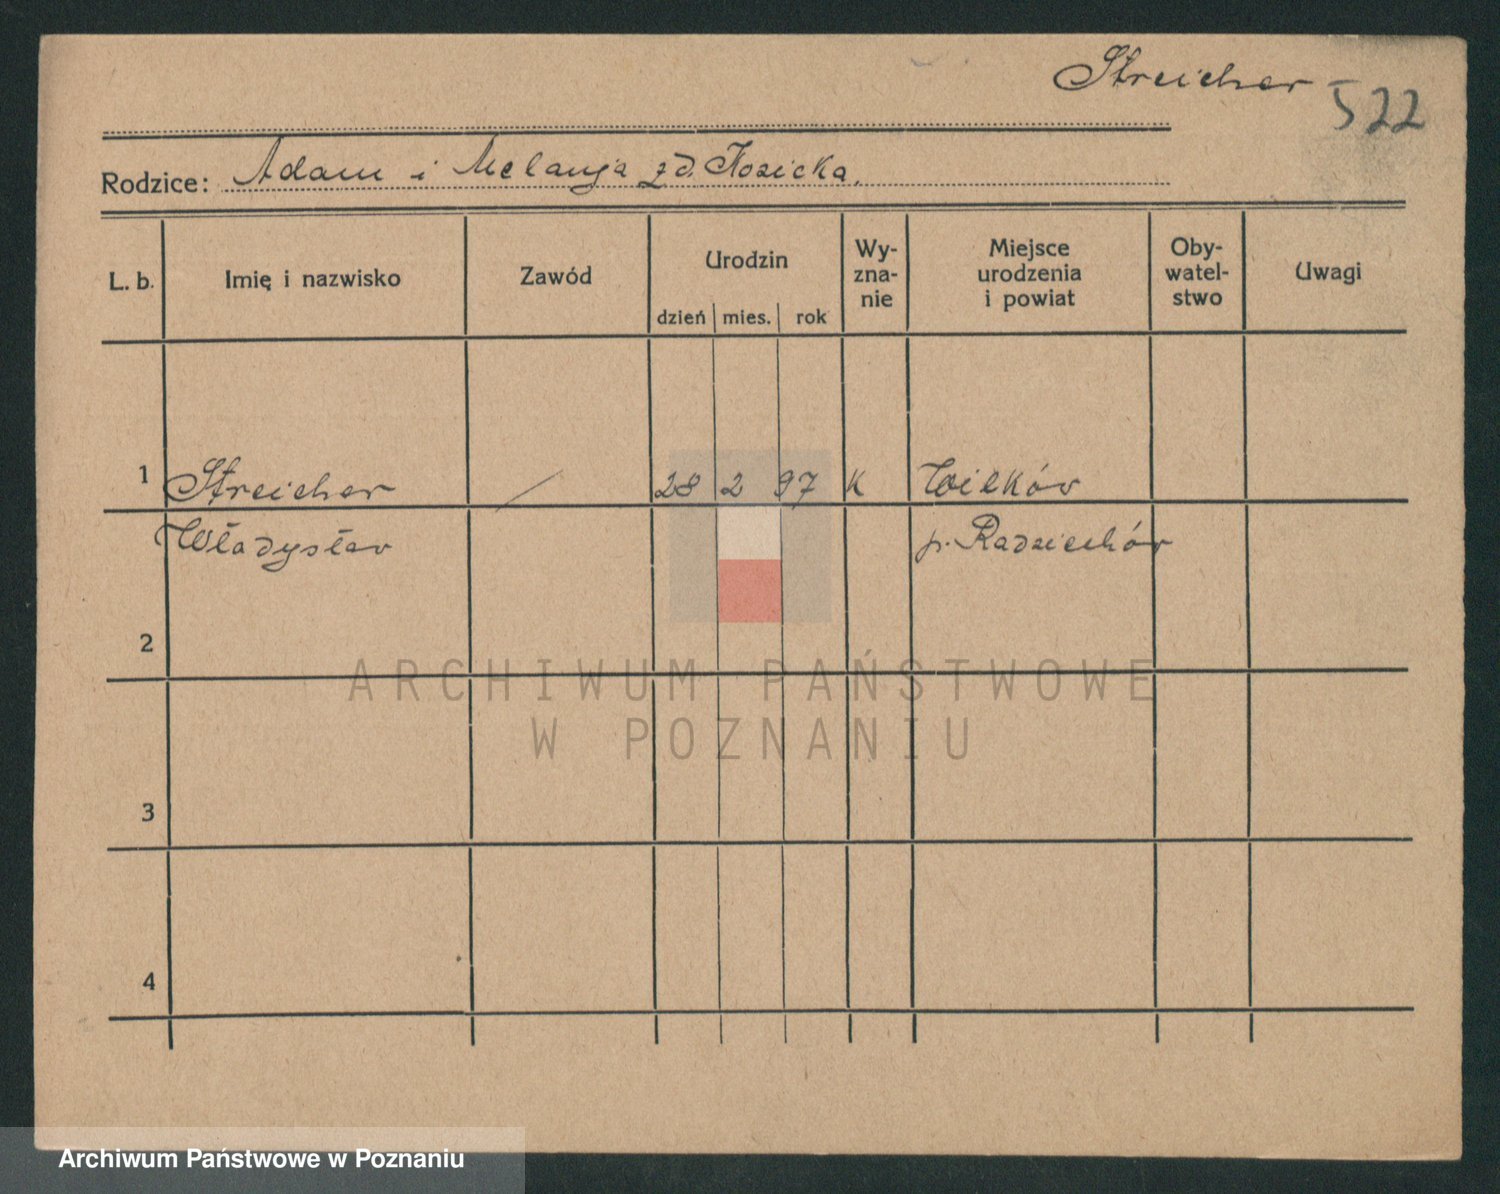 Streicher 522
Rodzice: Adam i Melanja zd. Kosicka.
L. b. Imię i nazwisko Zawód Urodzin Wy-zna-nie Miejsce urodzenia i powiat Oby-watel-stwo Uwagi
dzień mies. rok
1 Streicher / 28 2 97 K Wilków
Władysław p. Radziechów
2
ARCHIWUM PAŃSTWOWE
W POZNANIU
3
4
Archiwum Państwowe w Poznaniu